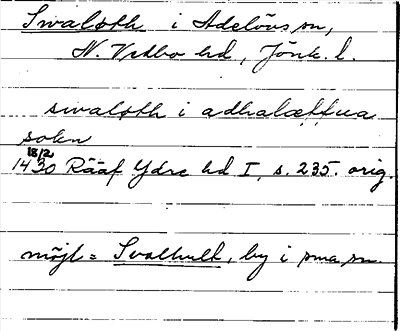 Swaloth i Adelövs sn,
N. Vedbo hd, Jönk. l.
swaloth i adhaløffua
sokn
18/2
1430 Rääf Ydre hd I, s. 235. orig.
möjl = Svalhult, by i sma sn.